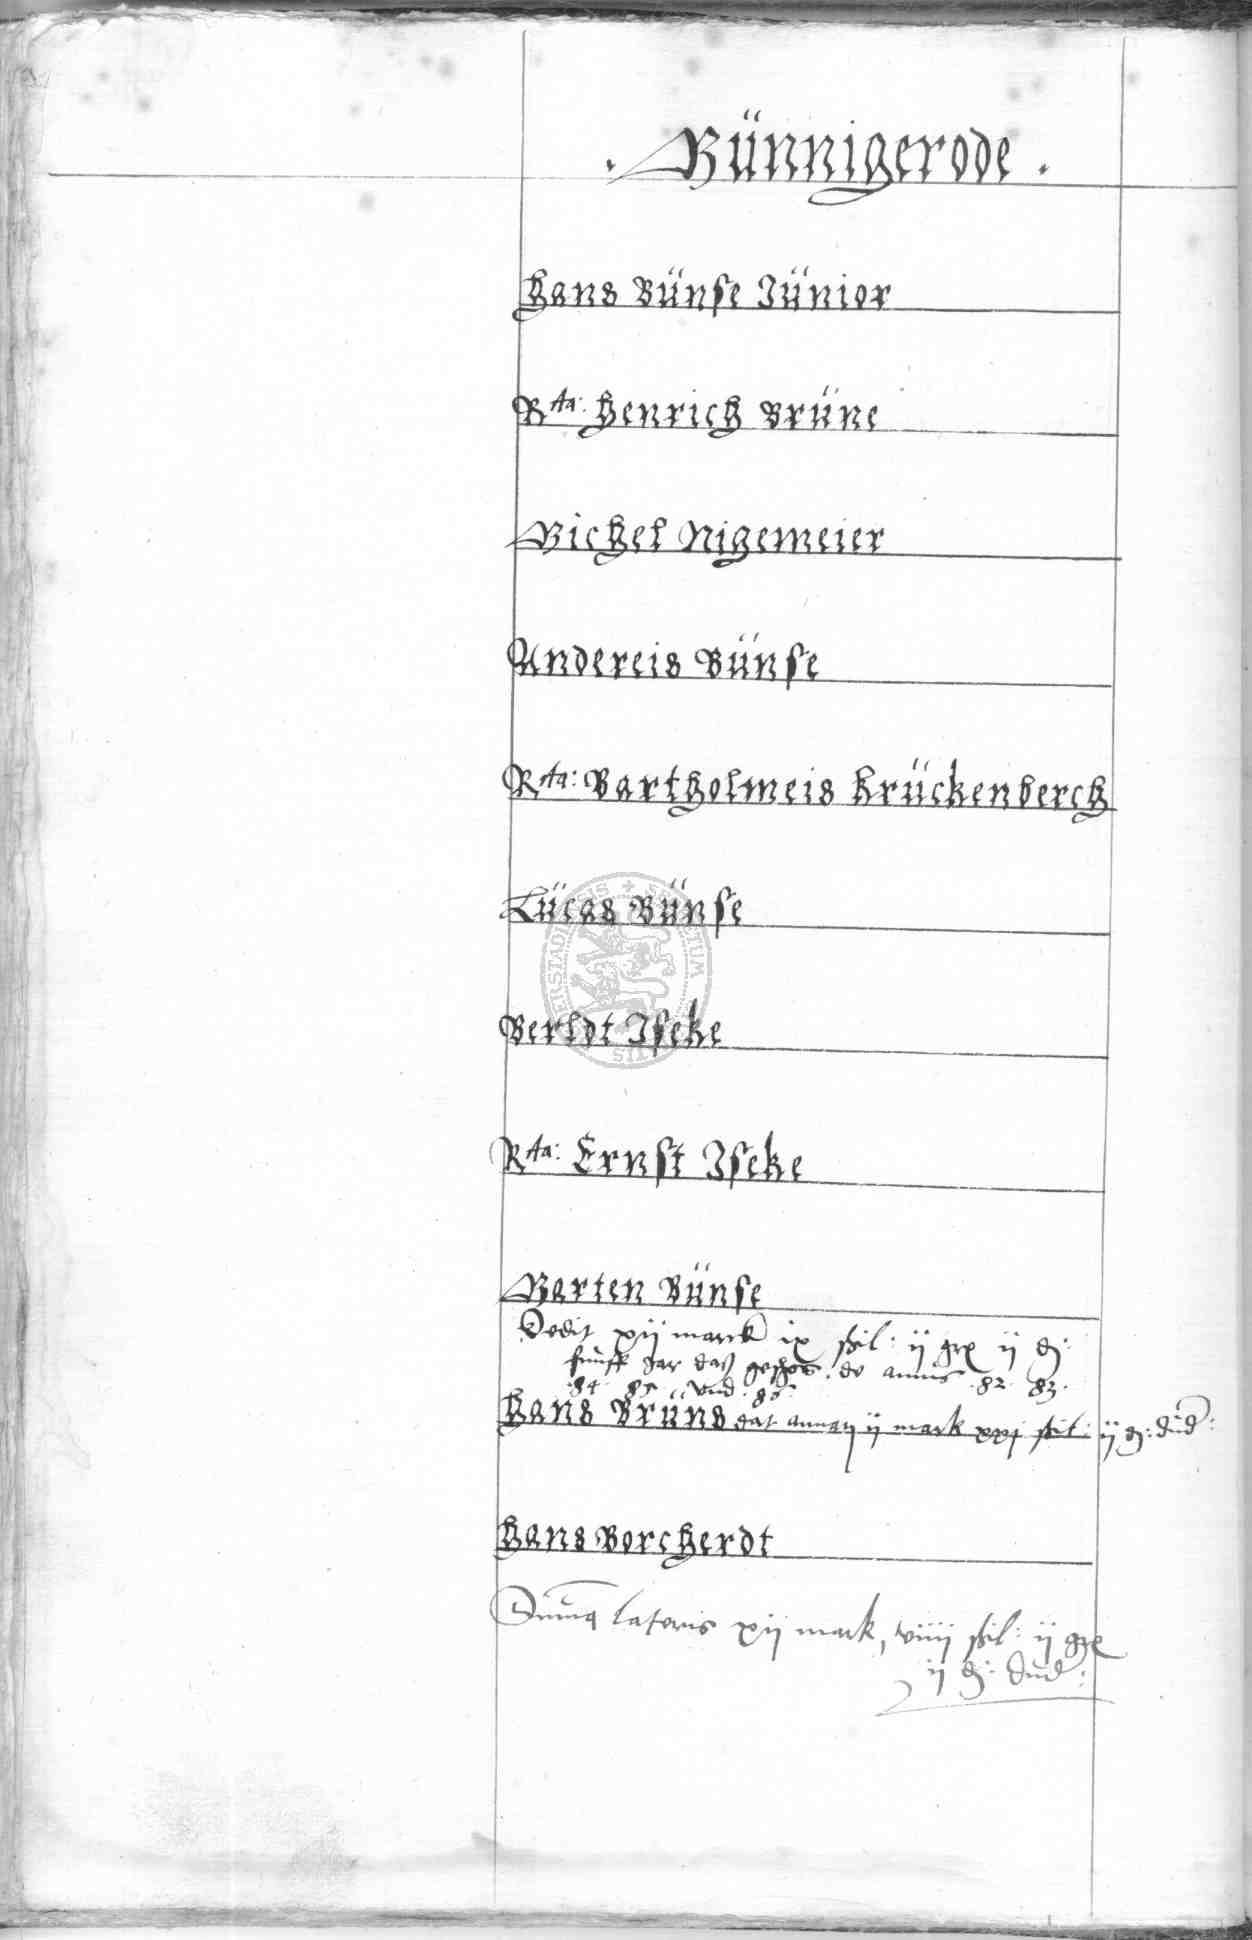 . Bünnigerode .
Hans Bünse Jünior
Rta: Henrich Brüne
Michel Nigemeier
Andereis Bünse
Rta: Bartholmeis Krückenberch
Lücas Bünse
Berldt Iseke
Rta: Ernst Iseke
Marten Bünse
Dedit xij marck ix ßil: ij gre ij d:
funff Jar daß geschos. de annis .82. 83.
.84. 85 vnd .86.
Hans Brüns dat ij mark xxj ßil: ij d: dud:
Hans Borcherdt
Suma lateris xij mark, viiij ßil: ij gre
ij d: dud: